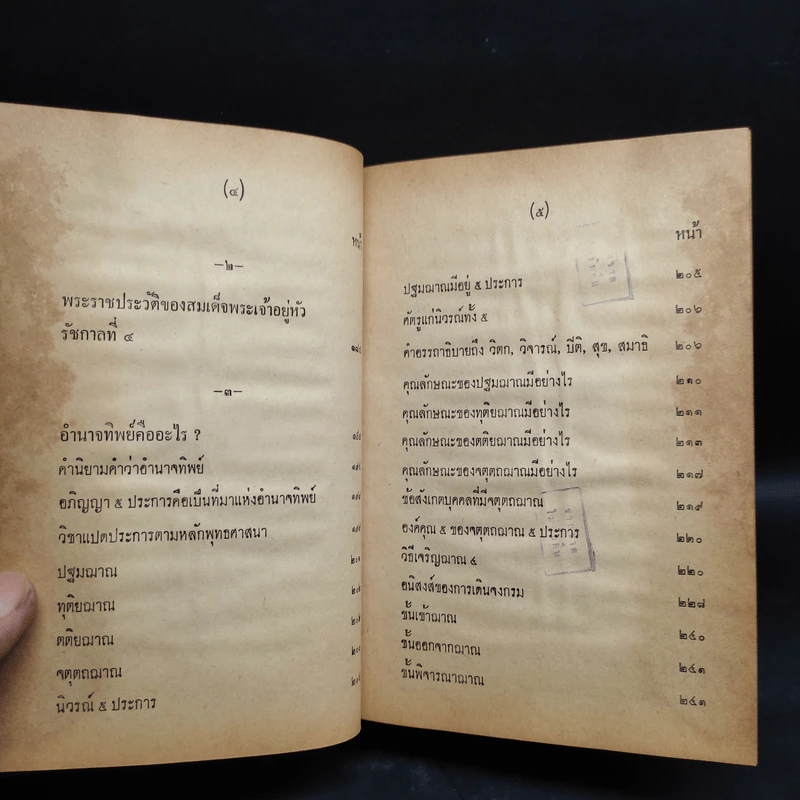 (๔)
หน้า
—๒—
พระราชประวัติของสมเด็จพระเจ้าอยู่หัว
รัชกาลที่ ๔
—๓—
อำนาจทิพย์คืออะไร ?
คำนิยามคำว่าอำนาจทิพย์
อภิญญา ๕ ประการคือเป็นที่มาแห่งอำนาจทิพย์
วิชาแปดประการตามหลักพุทธศาสนา
ปฐมฌาณ
ทุติยฌาณ
ตติยฌาณ
จตุตถฌาณ
นิวรณ์ ๕ ประการ
(๕)
หน้า
ปฐมฌาณมีอยู่ ๕ ประการ ๒๐๕
ศัตรูแก่นิวรณ์ทั้ง ๕ ๒๐๖
คำอรรถาธิบายถึง วิตก, วิจารณ์, ปีติ, สุข, สมาธิ ๒๐๖
คุณลักษณะของปฐมฌาณมีอย่างไร ๒๑๐
คุณลักษณะของทุติยฌาณมีอย่างไร ๒๑๑
คุณลักษณะของตติยฌาณมีอย่างไร ๒๑๓
คุณลักษณะของจตุตถฌาณมีอย่างไร ๒๑๗
ข้อสังเกตบุคคลที่มีจตุตถฌาณ ๒๑๙
องค์คุณ ๕ ของจตุตถฌาณ ๕ ประการ ๒๒๐
วิธีเจริญฌาณ ๔ ๒๒๐
อนิสงส์ของการเดินจงกรม ๒๒๗
ขั้นเข้าฌาณ ๒๔๐
ขั้นออกจากฌาณ ๒๔๑
ขั้นพิจารณาฌาณ ๒๔๑